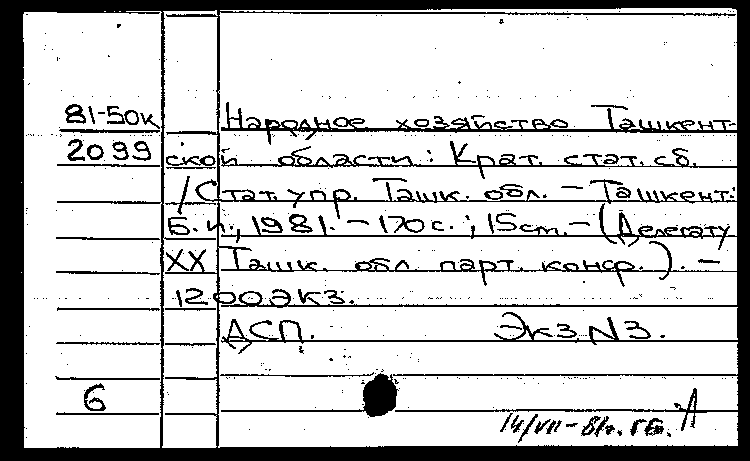 81-50к Народное хозяйство Ташкент-
2099 ской области: Крат. стат. сб.
/Стат. упр. Ташк. обл. – Ташкент:
Б.и., 1981. – 170 с.; 15 см. – (Делегату
XX Ташк. обл. парт. конф.). –
1200 экз.
ДСП. Экз. N3.
6
14/VII – 81г. ГБ.